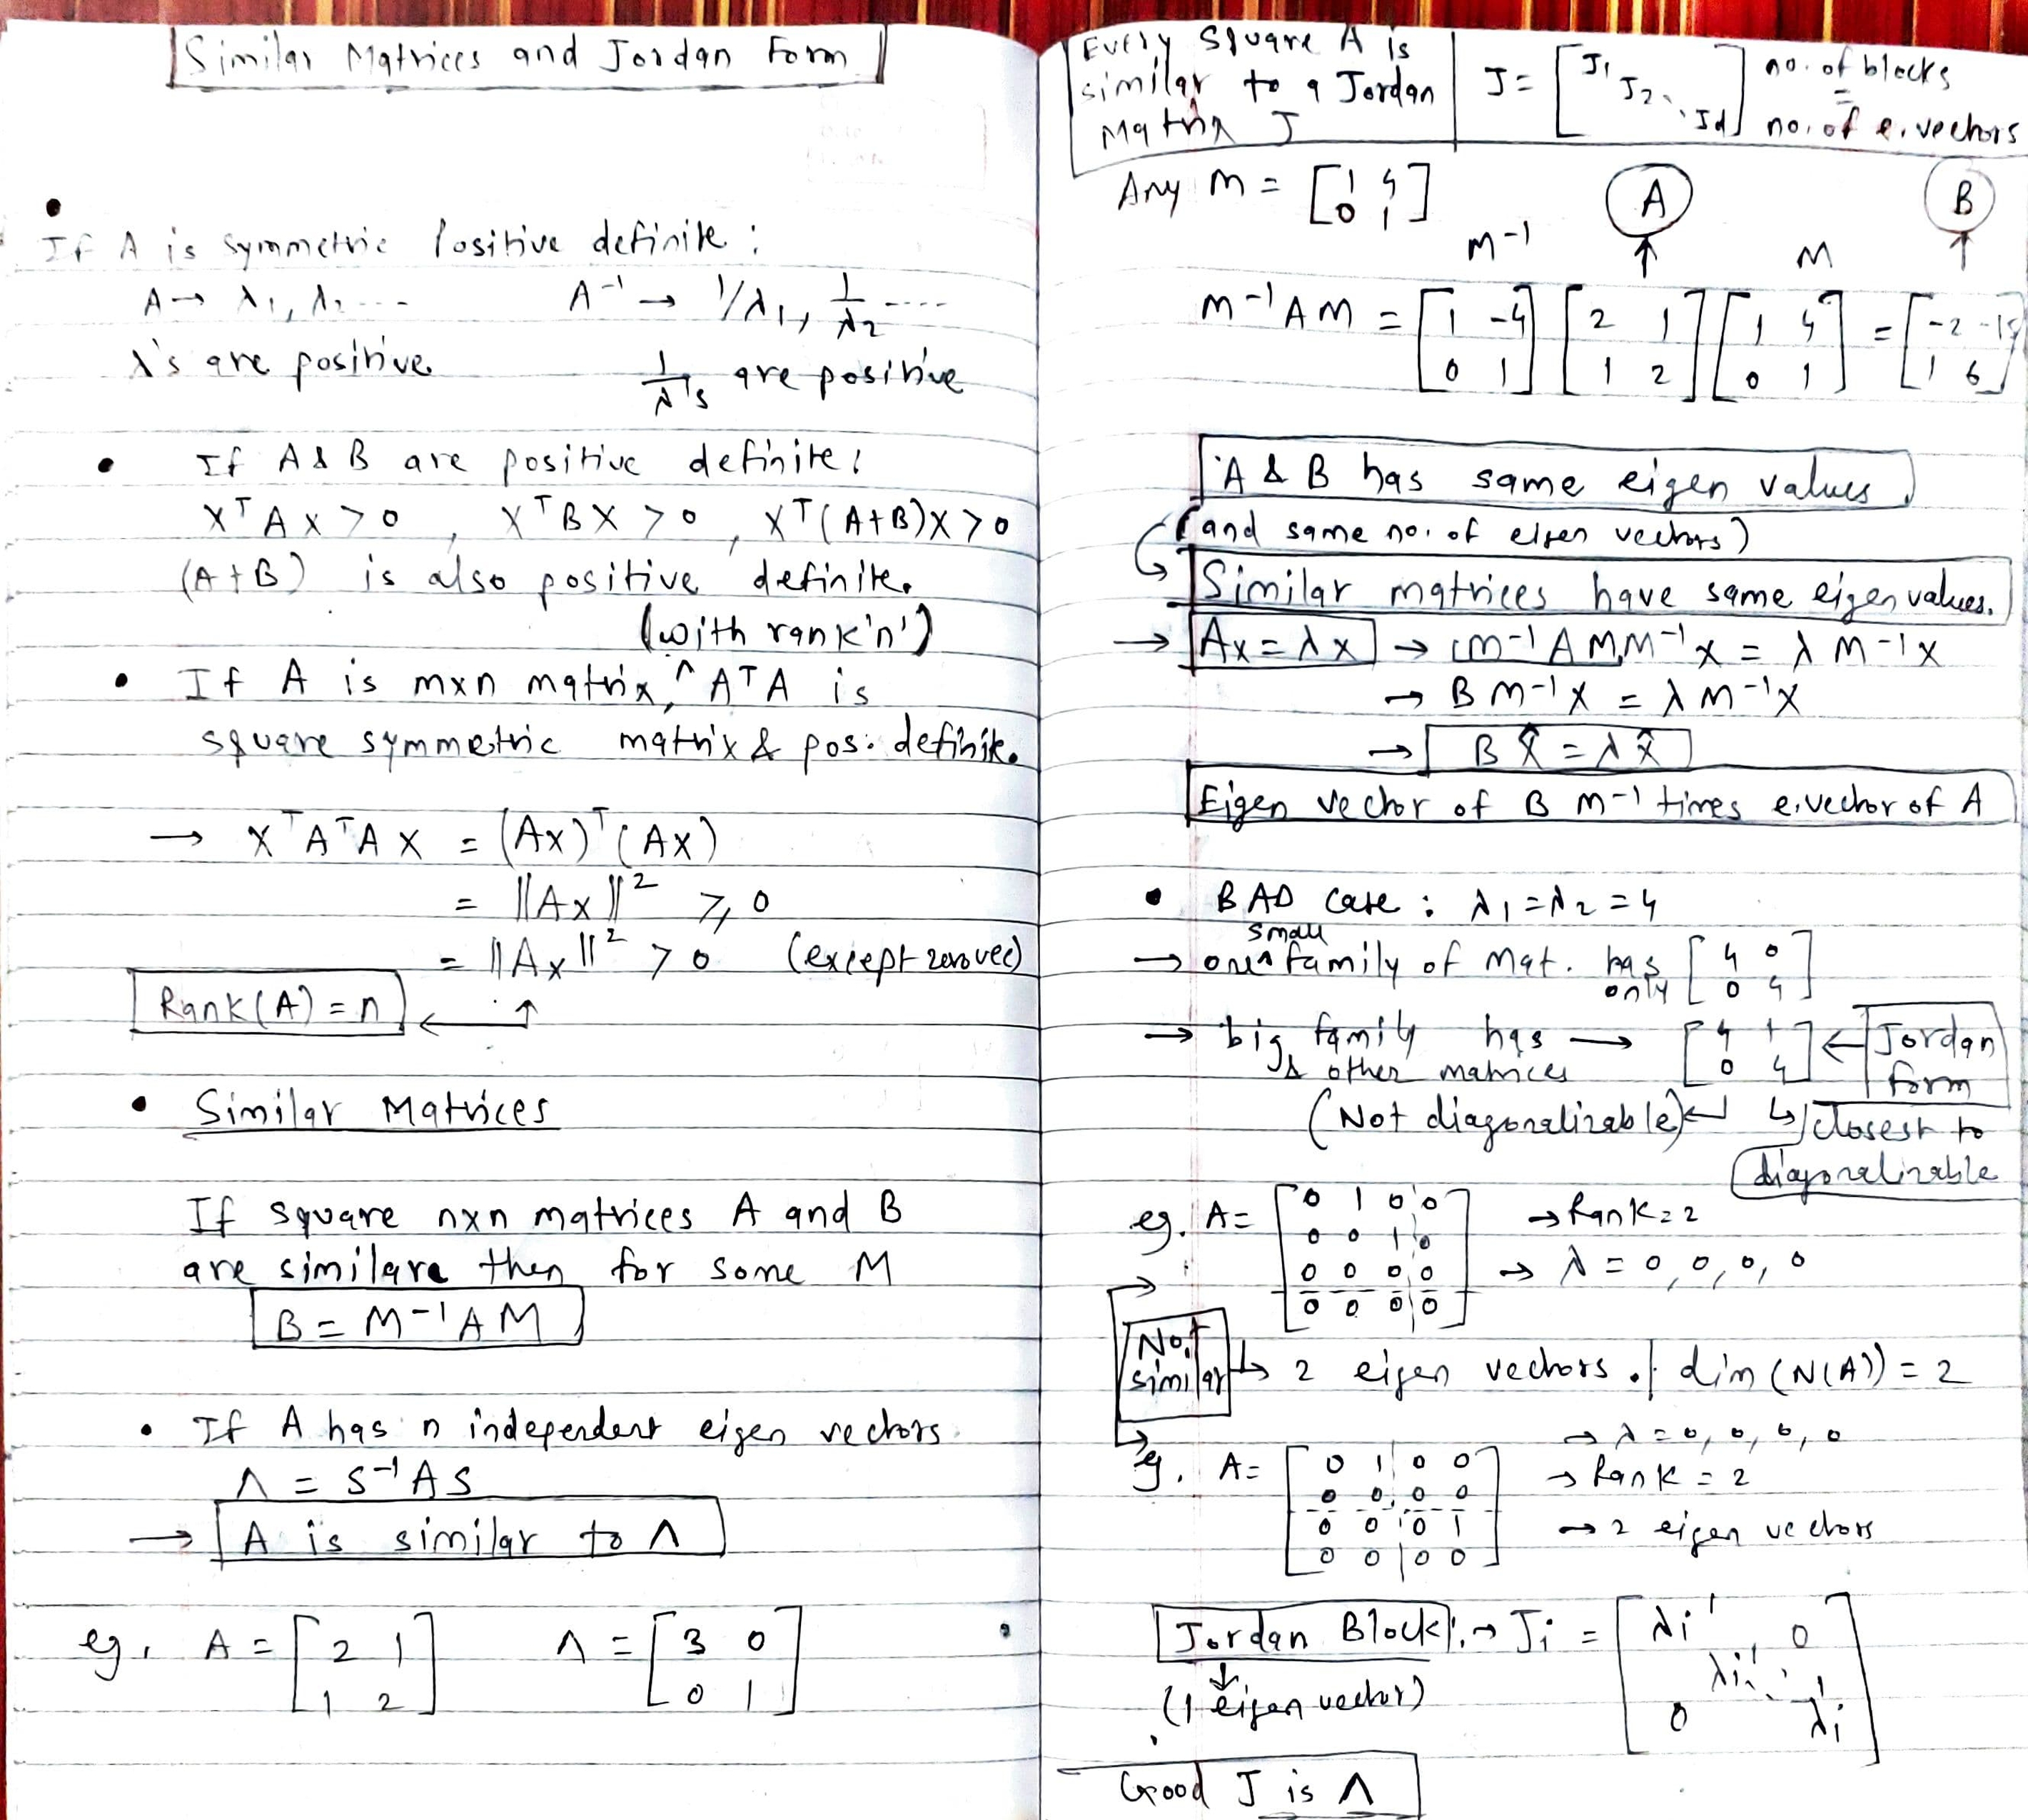 Similar Matrices and Jordan Form
If A is symmetric Positive definite :
A → λ1, λ2 ---    A⁻¹ → 1/λ1, 1/λ2 ----
λ's are positive    1/λ's are positive
• If A & B are positive definite:
XᵀAX > 0 , XᵀBX > 0 , Xᵀ(A+B)X > 0
(A+B) is also positive definite.
(with rank 'n')
• If A is mxn matrix, ^ AᵀA is
square symmetric matrix & pos. definite.
→ XᵀAᵀAX = (AX)ᵀ(AX)
= ||AX||² ≥ 0
= ||AX||² > 0 (except zero vec)
Rank(A) = n ← ↑
• Similar Matrices
If square nxn matrices A and B
are similare then for some M
B = M⁻¹AM
• If A has n independent eigen vectors
Λ = S⁻¹AS
→ A is similar to Λ
eg. A = [2 1    Λ = [3 0
1 2]    0 1]
Every square A is
similar to a Jordan
Matrix J
J = [J1 J2 ⋱ Jd] no. of blocks
=
no. of e. vectors
Any M = [1 4
0 1]
M⁻¹ A M B
M⁻¹AM = [1 -4  [2 1  [1 4  = [-2 -15
0 1]  1 2]  0 1]  1 6]
A & B has same eigen values
(and same no. of eigen vectors)
Similar matrices have same eigen values.
→ Ax = λx → (M⁻¹AM M⁻¹x = λM⁻¹x
→ BM⁻¹X = λM⁻¹X
→ B x̂ = λ x̂
Eigen vector of B M⁻¹ times e.vector of A
• BAD case : λ1 = λ2 = 4
→ one small family of Mat. has only [4 0
0 4]
→ big family has → [4 1 ← Jordan form
0 4]
& other matrices
(Not diagonalizable) ↵ ↳ closest to
diagonalizable
eg. A = [0 1 0 0 → Rank = 2
0 0 1 0
0 0 0 0 → λ = 0, 0, 0, 0
0 0 0 0]
Not
similar
↳ 2 eigen vectors. dim (N(A)) = 2
→ λ = 0, 0, 0, 0
eg. A = [0 1 0 0 → Rank = 2
0 0 0 0
0 0 0 1 → 2 eigen vectors
0 0 0 0]
Jordan Block : → Ji = [λi 1 0
λi 1 ⋱ 1
0 λi]
↓
(1 eigen vector)
Good J is Λ